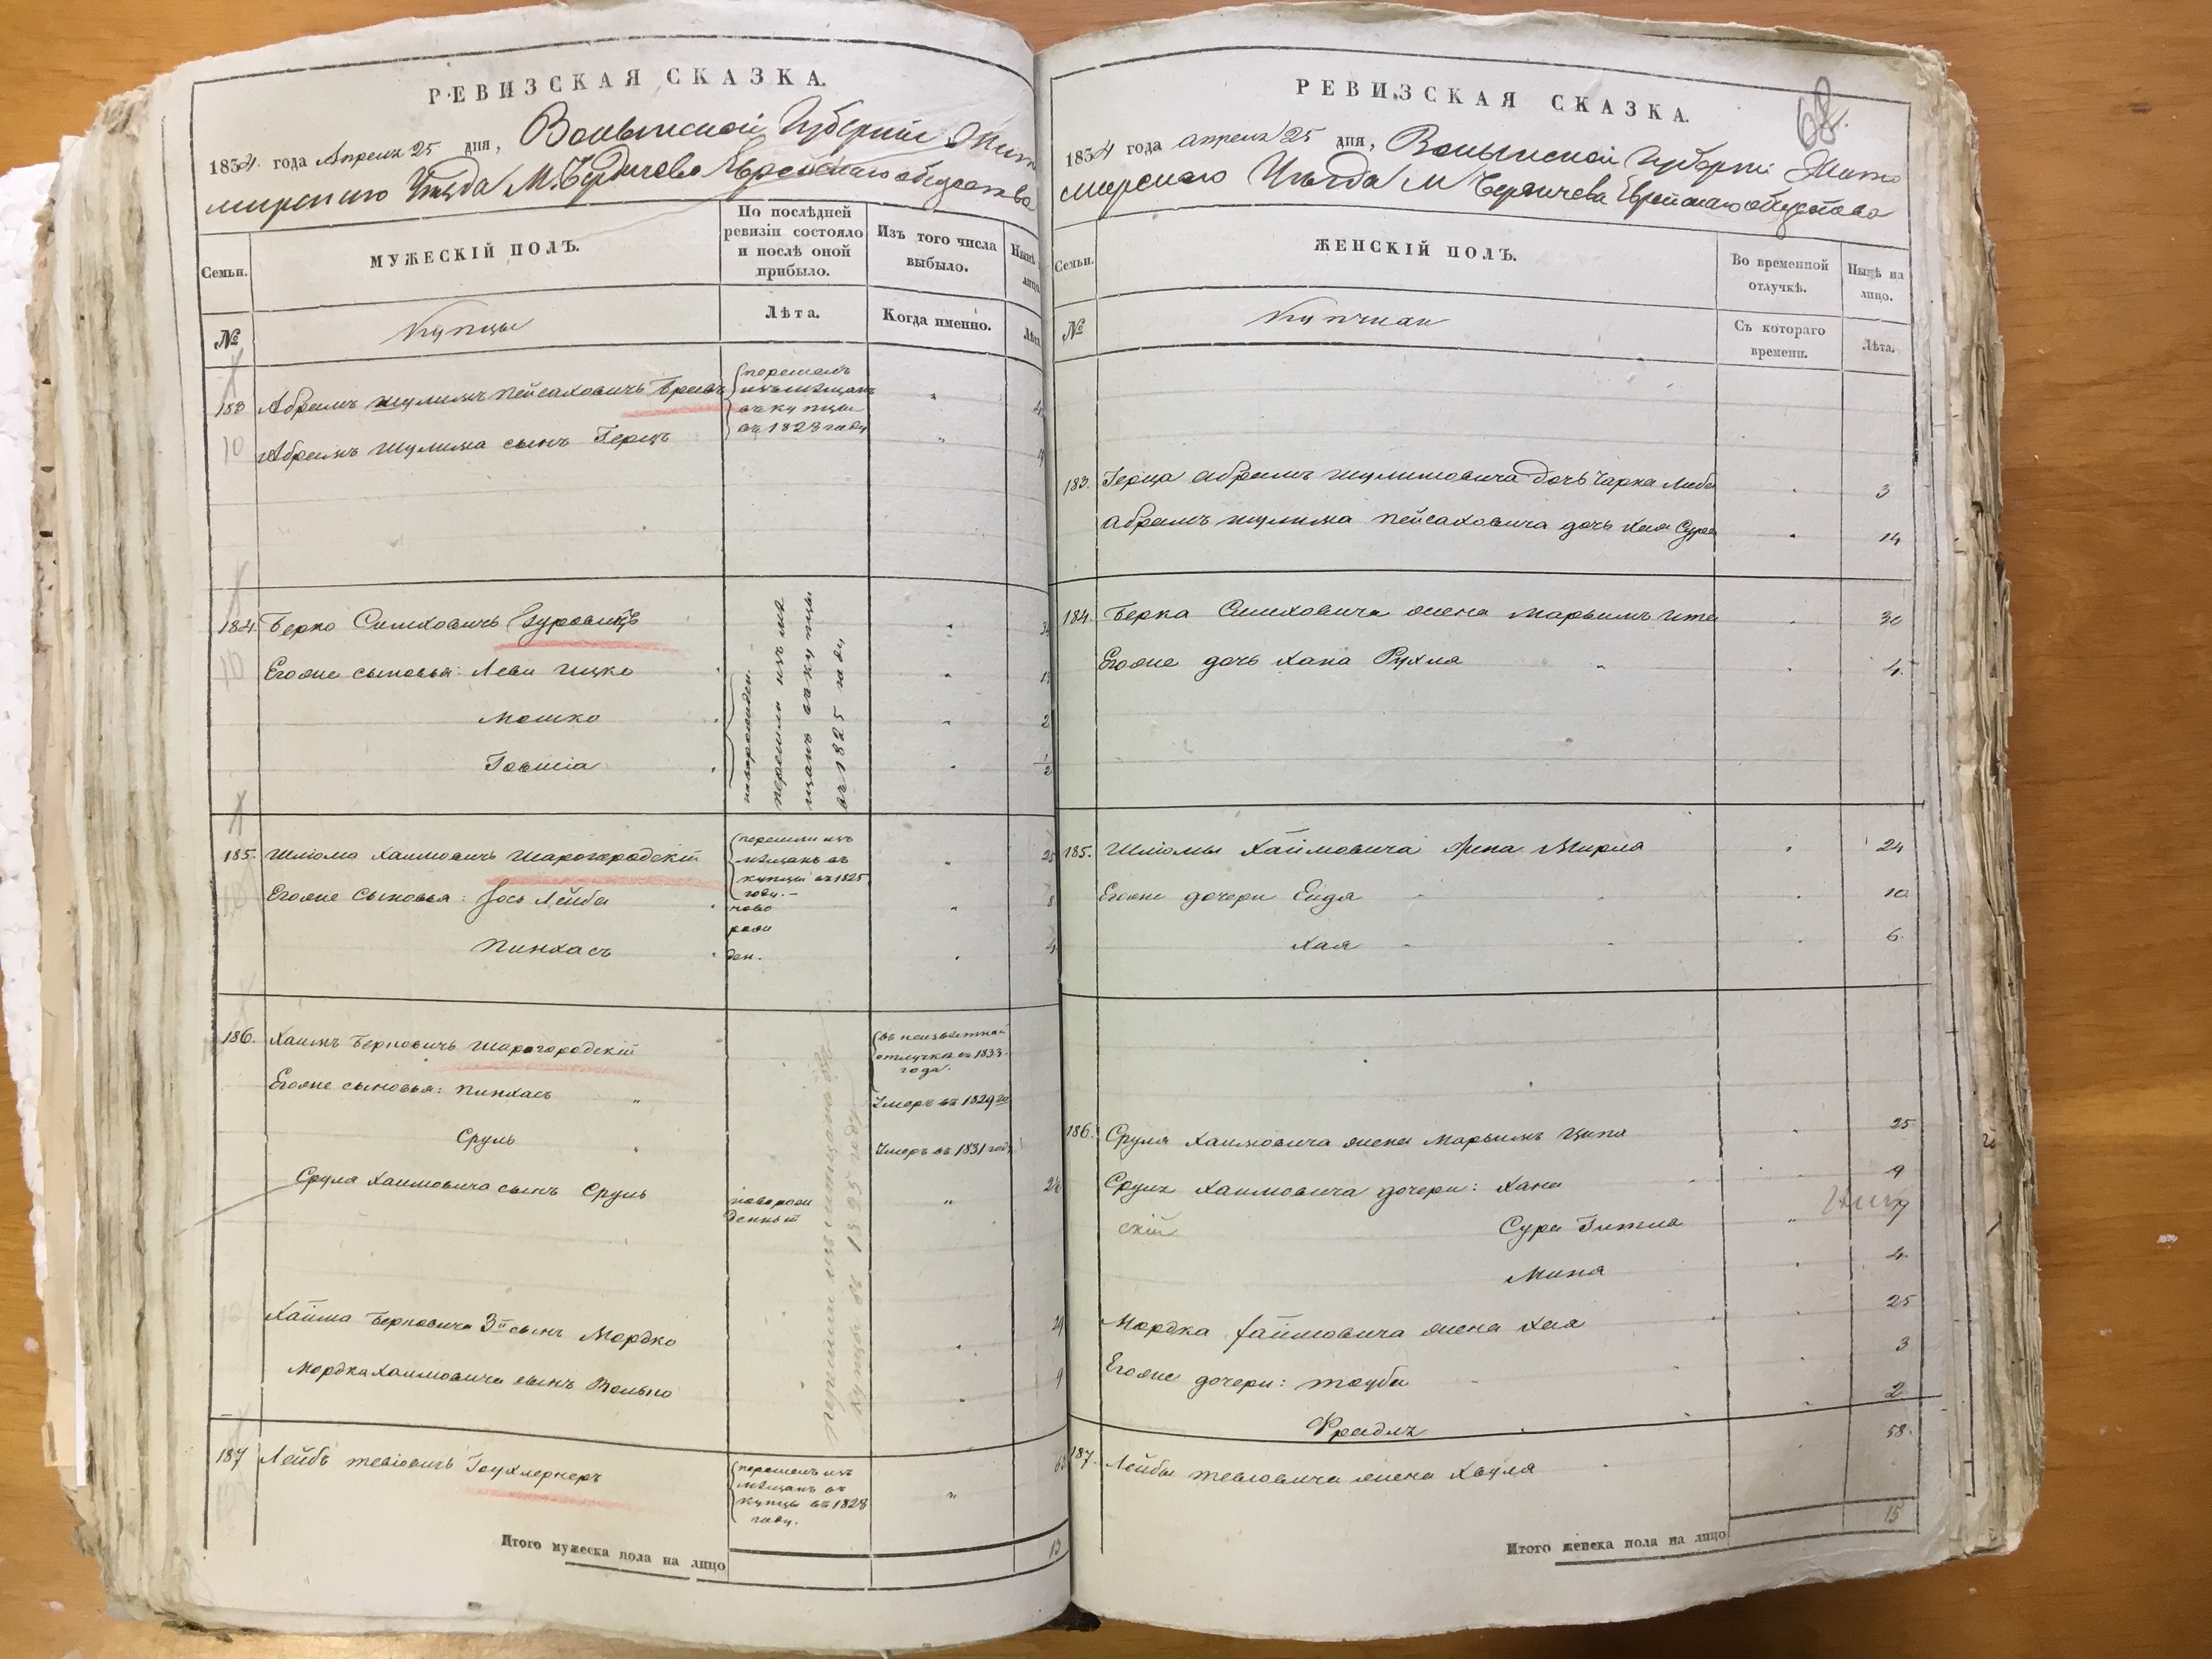 РЕВИЗСКАЯ СКАЗКА.
1834 года Апреля 25 дня, Волынской Губернии Жито
мирского Уѣзда М. Бердичева Еврейскаго общества
Семьи.
МУЖЕСКІЙ ПОЛЪ.
По послѣдней ревизіи состояло и послѣ оной прибыло.
Изъ того числа выбыло.
Нынѣ лицо
№
Купцы
Лѣта.
Когда именно.
Лѣта
183 Абрамъ Шулимъ Пейсаховичъ
перешелъ
изъ мѣщанъ
въ купцы
въ 1828 году
10 Абрамъ Шулима сынъ Герцъ
184. Берко Симховичъ Гуровицъ
10 Егоже сыновья: Леви Ицко
Мошко 2
Говшіа 1/2
новорожден.
перешли изъ мѣ
щанъ въ купцы
въ 1825 году
185. Шлiома Хаимовичъ Шарогородскій 25
перешли изъ
мѣщанъ въ
купцы въ 1825
году. —
Егоже сыновья: Іось Лейба 8
ново
рож
Пинхасъ ден. 4
186. Хаимъ Берковичъ Шарогородскій
въ неизвѣстной
отлучкѣ въ 1833
года.
Егоже сыновья: Пинхасъ " Умеръ въ 1829
Сруль " Умеръ въ 1831 году
Сруля Хаимовича сынъ Сруль
новорож
денный
перешли изъ мѣщанъ въ
купцы въ 1825 году
Хаима Берковича 3й сынъ Мордко
Мордка Хаимовича сынъ Волько 9
187 Лейбъ Тевіовичъ
перешелъ изъ
мѣщанъ въ
купцы въ 1828
году.
Итого мужеска пола на лицо 13
РЕВИЗСКАЯ СКАЗКА.
68.
1834 года апреля 25 дня, Волынской Губерніи Жито
мирскаго Уѣзда М Бердичева Еврейскаго общества
Семьи.
ЖЕНСКІЙ ПОЛЪ.
Во временной отлучкѣ.
Нынѣ на лицо.
№
Купчихи
Съ котораго времени.
Лѣта.
183. Герца Абрамъ Шулимовича дочь Чарна Либа 3
Абрамъ Шулима Пейсаховича дочь Хая Сура 14
184. Берка Симховича жена Марьямъ Ита 30
Егоже дочь Хана Рухля 4.
185. Шліомы Хаймовича жена Мирля 24
Егоже дочери Енда 10
Хая 6.
186. Сруля Хаимовича жена Марьямъ Ципа 25
Сруля Хаимовича дочери: Хана 9
скій
Сура Гитля 7
Миня 4.
Мордка Хаймовича жена Хая 25
Егоже дочери: Тауба 3
Фрадля 2
187. Лейбы Тевіовича жена Хвуля 58.
15
Итого женска пола на лицо